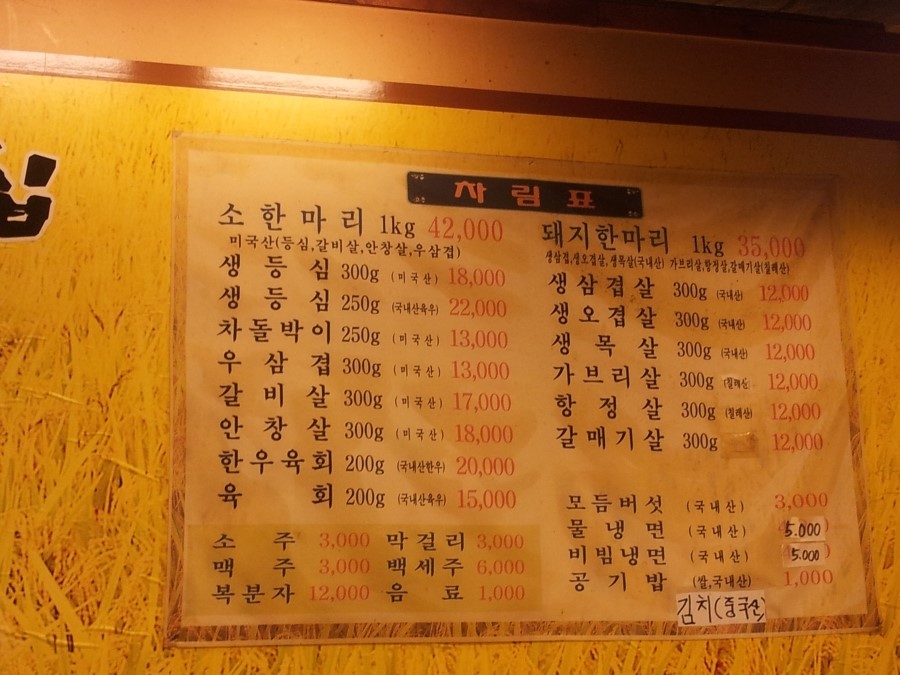 차림표
소한마리 1kg 42,000
미국산(등심,갈비살,안창살,우삼겹)
생등심 300g (미국산) 18,000
생등심 250g (국내산육우) 22,000
차돌박이 250g (미국산) 13,000
우삼겹 300g (미국산) 13,000
갈비살 300g (미국산) 17,000
안창살 300g (미국산) 18,000
한우육회 200g (국내산한우) 20,000
육회 200g (국내산육우) 15,000
소주 3,000 막걸리 3,000
맥주 3,000 백세주 6,000
복분자 12,000 음료 1,000
돼지한마리 1kg 35,000
생삼겹,생오겹살,생목살(국내산) 가브리살,항정살,갈매기살(칠레산)
생삼겹살 300g (국내산) 12,000
생오겹살 300g (국내산) 12,000
생목살 300g (국내산) 12,000
가브리살 300g (칠레산) 12,000
항정살 300g (칠레산) 12,000
갈매기살 300g 12,000
모듬버섯 (국내산) 3,000
물냉면 (국내산) 5.000
비빔냉면 (국내산) 5.000
공기밥 (쌀,국내산) 1,000
김치(중국산)